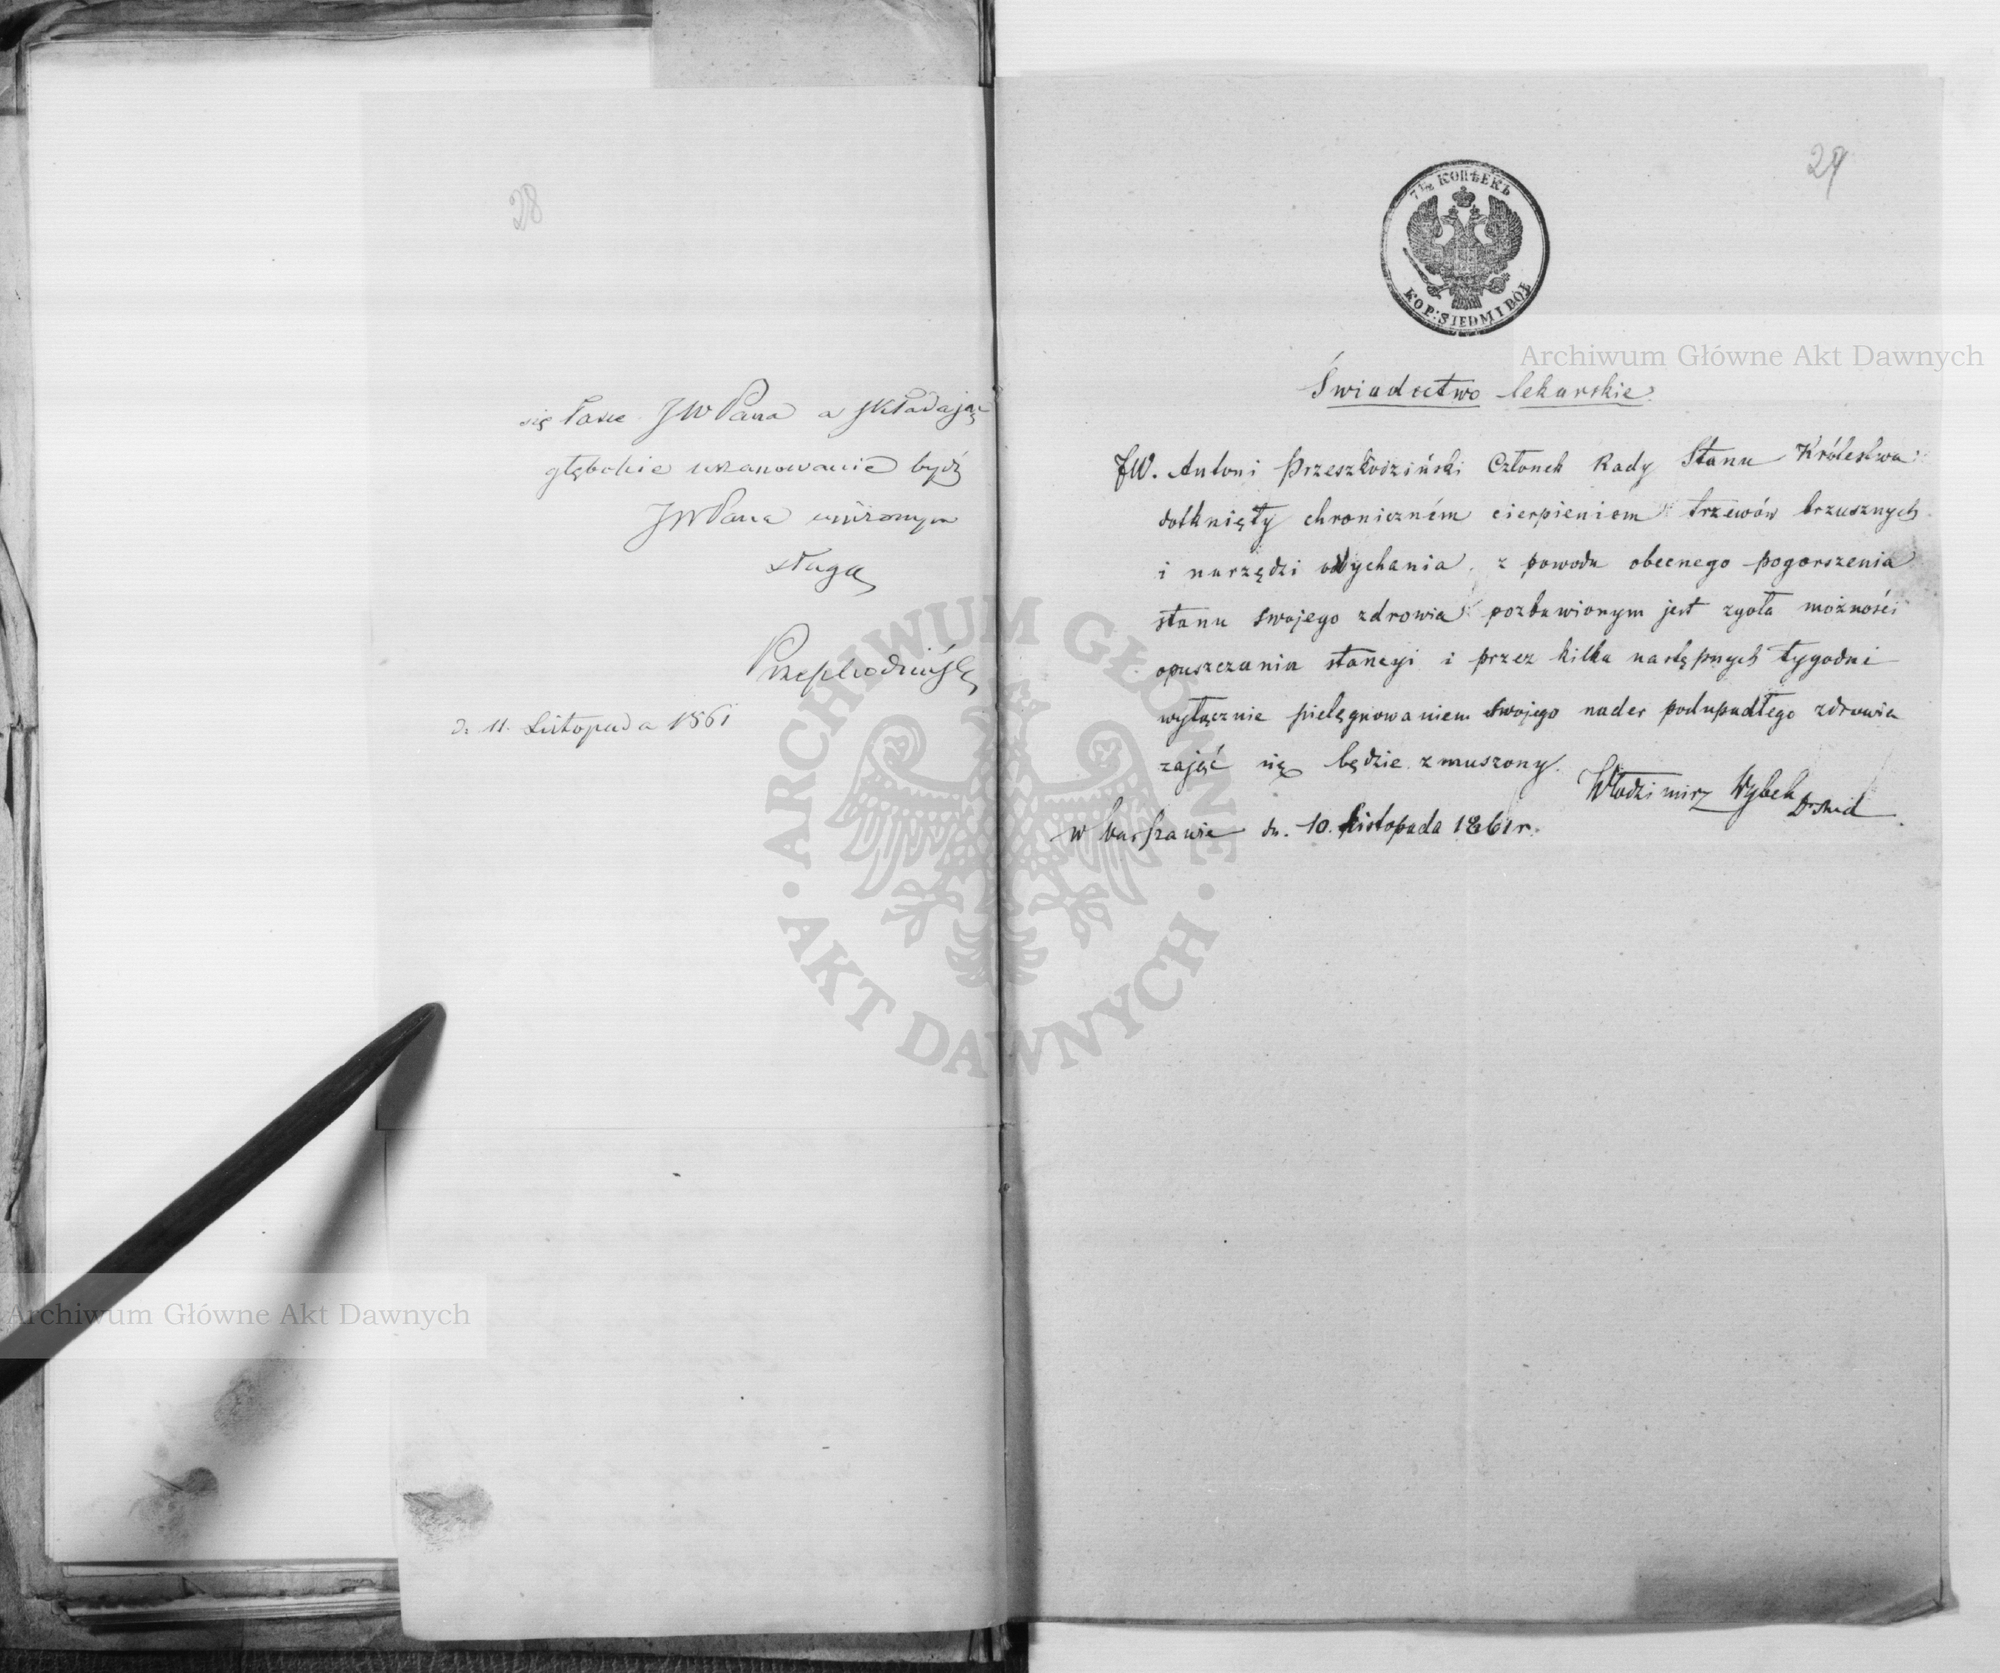 28
się łasce JWPana a składając
głębokie uszanowanie bydź
JWPana uniżonym
sługą
Przeszłodziński
d. 11. Listopada 1861
29
7½ КОПѢЕКЪ
KOP: SIEDM I PÓŁ
Świadectwo lekarskie
JW. Antoni Przeszłodziński Członek Rady Stanu Królestwa
dotknięty chroniczném cierpieniem trzewów brzusznych
i narzędzi oddychania, z powodu obecnego pogorszenia
stanu swojego zdrowia pozbawionym jest zgoła możności
opuszczania stancyi i przez kilka następnych tygodni
wyłącznie pielęgnowaniem swojego nader podupadłego zdrowia
zająć się będzie zmuszony.
Włodzimirz Wybek
Dr Med
w Warszawie dn. 10. Listopada 1861 r.
Archiwum Główne Akt Dawnych
ARCHIWUM GŁÓWNE
· AKT DAWNYCH ·
Archiwum Główne Akt Dawnych